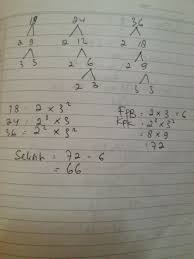 18 24 36
2 9 2 12 2 18
3 3 2 6 2 9
2 3 3 3
18 = 2 × 3²
24 = 2³ × 3
36 = 2² × 3²
FPB = 2 × 3 = 6
KPK = 2³ × 3²
= 8 × 9
= 72
Selisih = 72 - 6
= 66